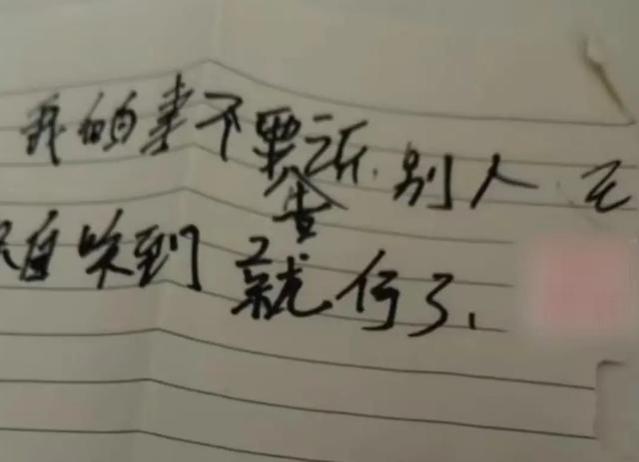 我的事不要告诉别人
自 到就行了、